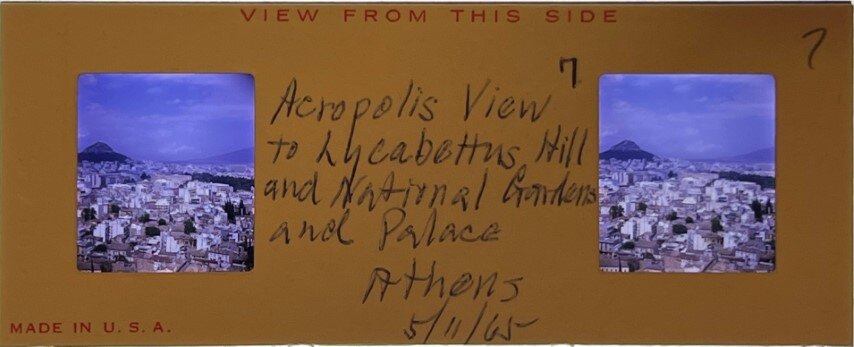 VIEW FROM THIS SIDE
7
7
Acropolis View
to Lycabettus Hill
and National Gardens
and Palace
Athens
5/11/65
MADE IN U.S.A.